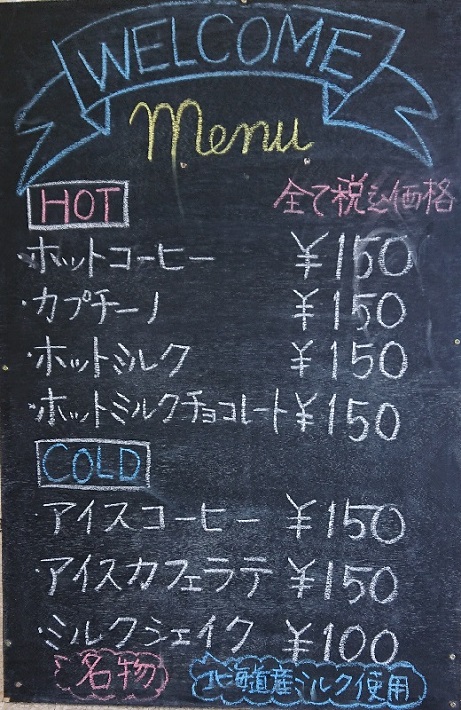 WELCOME
Menu
HOT 全て税込価格
・ホットコーヒー ¥150
・カプチーノ ¥150
・ホットミルク ¥150
・ホットミルクチョコレート ¥150
COLD
・アイスコーヒー ¥150
・アイスカフェラテ ¥150
・ミルクシェイク ¥100
名物 北海道産ミルク使用